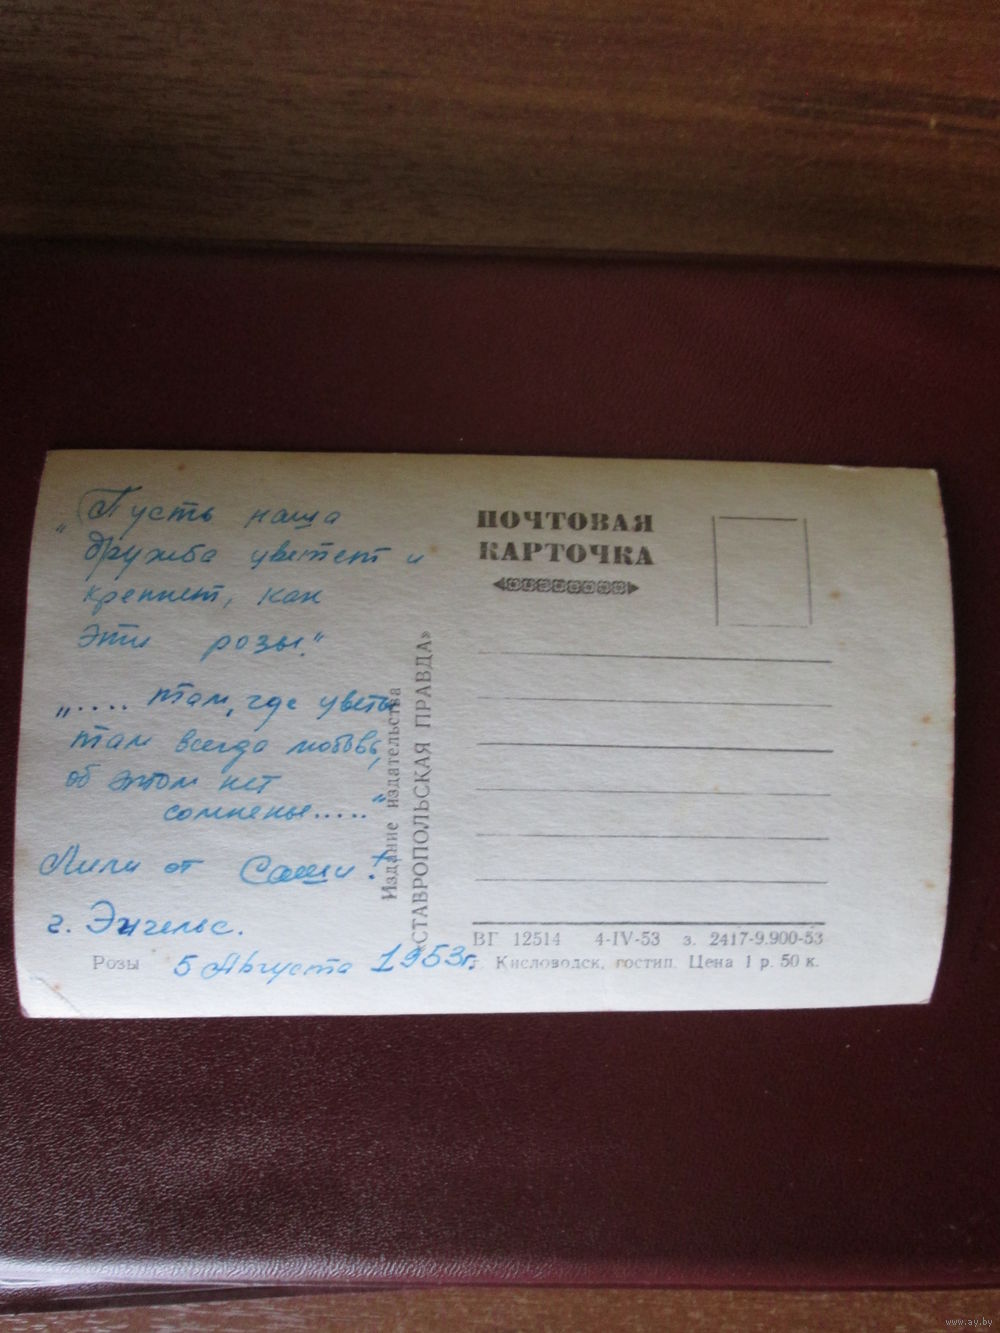 „Пусть наша
дружба цветет и
крепнет, как
эти розы."
„.... там, где цветы
там всегда любовь,
об этом нет
сомненье....."
Лили от Саши!
г. Энгельс.
5 Августа 1953г.
Розы
Издание издательства
«СТАВРОПОЛЬСКАЯ ПРАВДА»
ПОЧТОВАЯ
КАРТОЧКА
ВГ 12514 4-IV-53 з. 2417-9.900-53
г. Кисловодск, гостип. Цена 1 р. 50 к.
www.ay.by